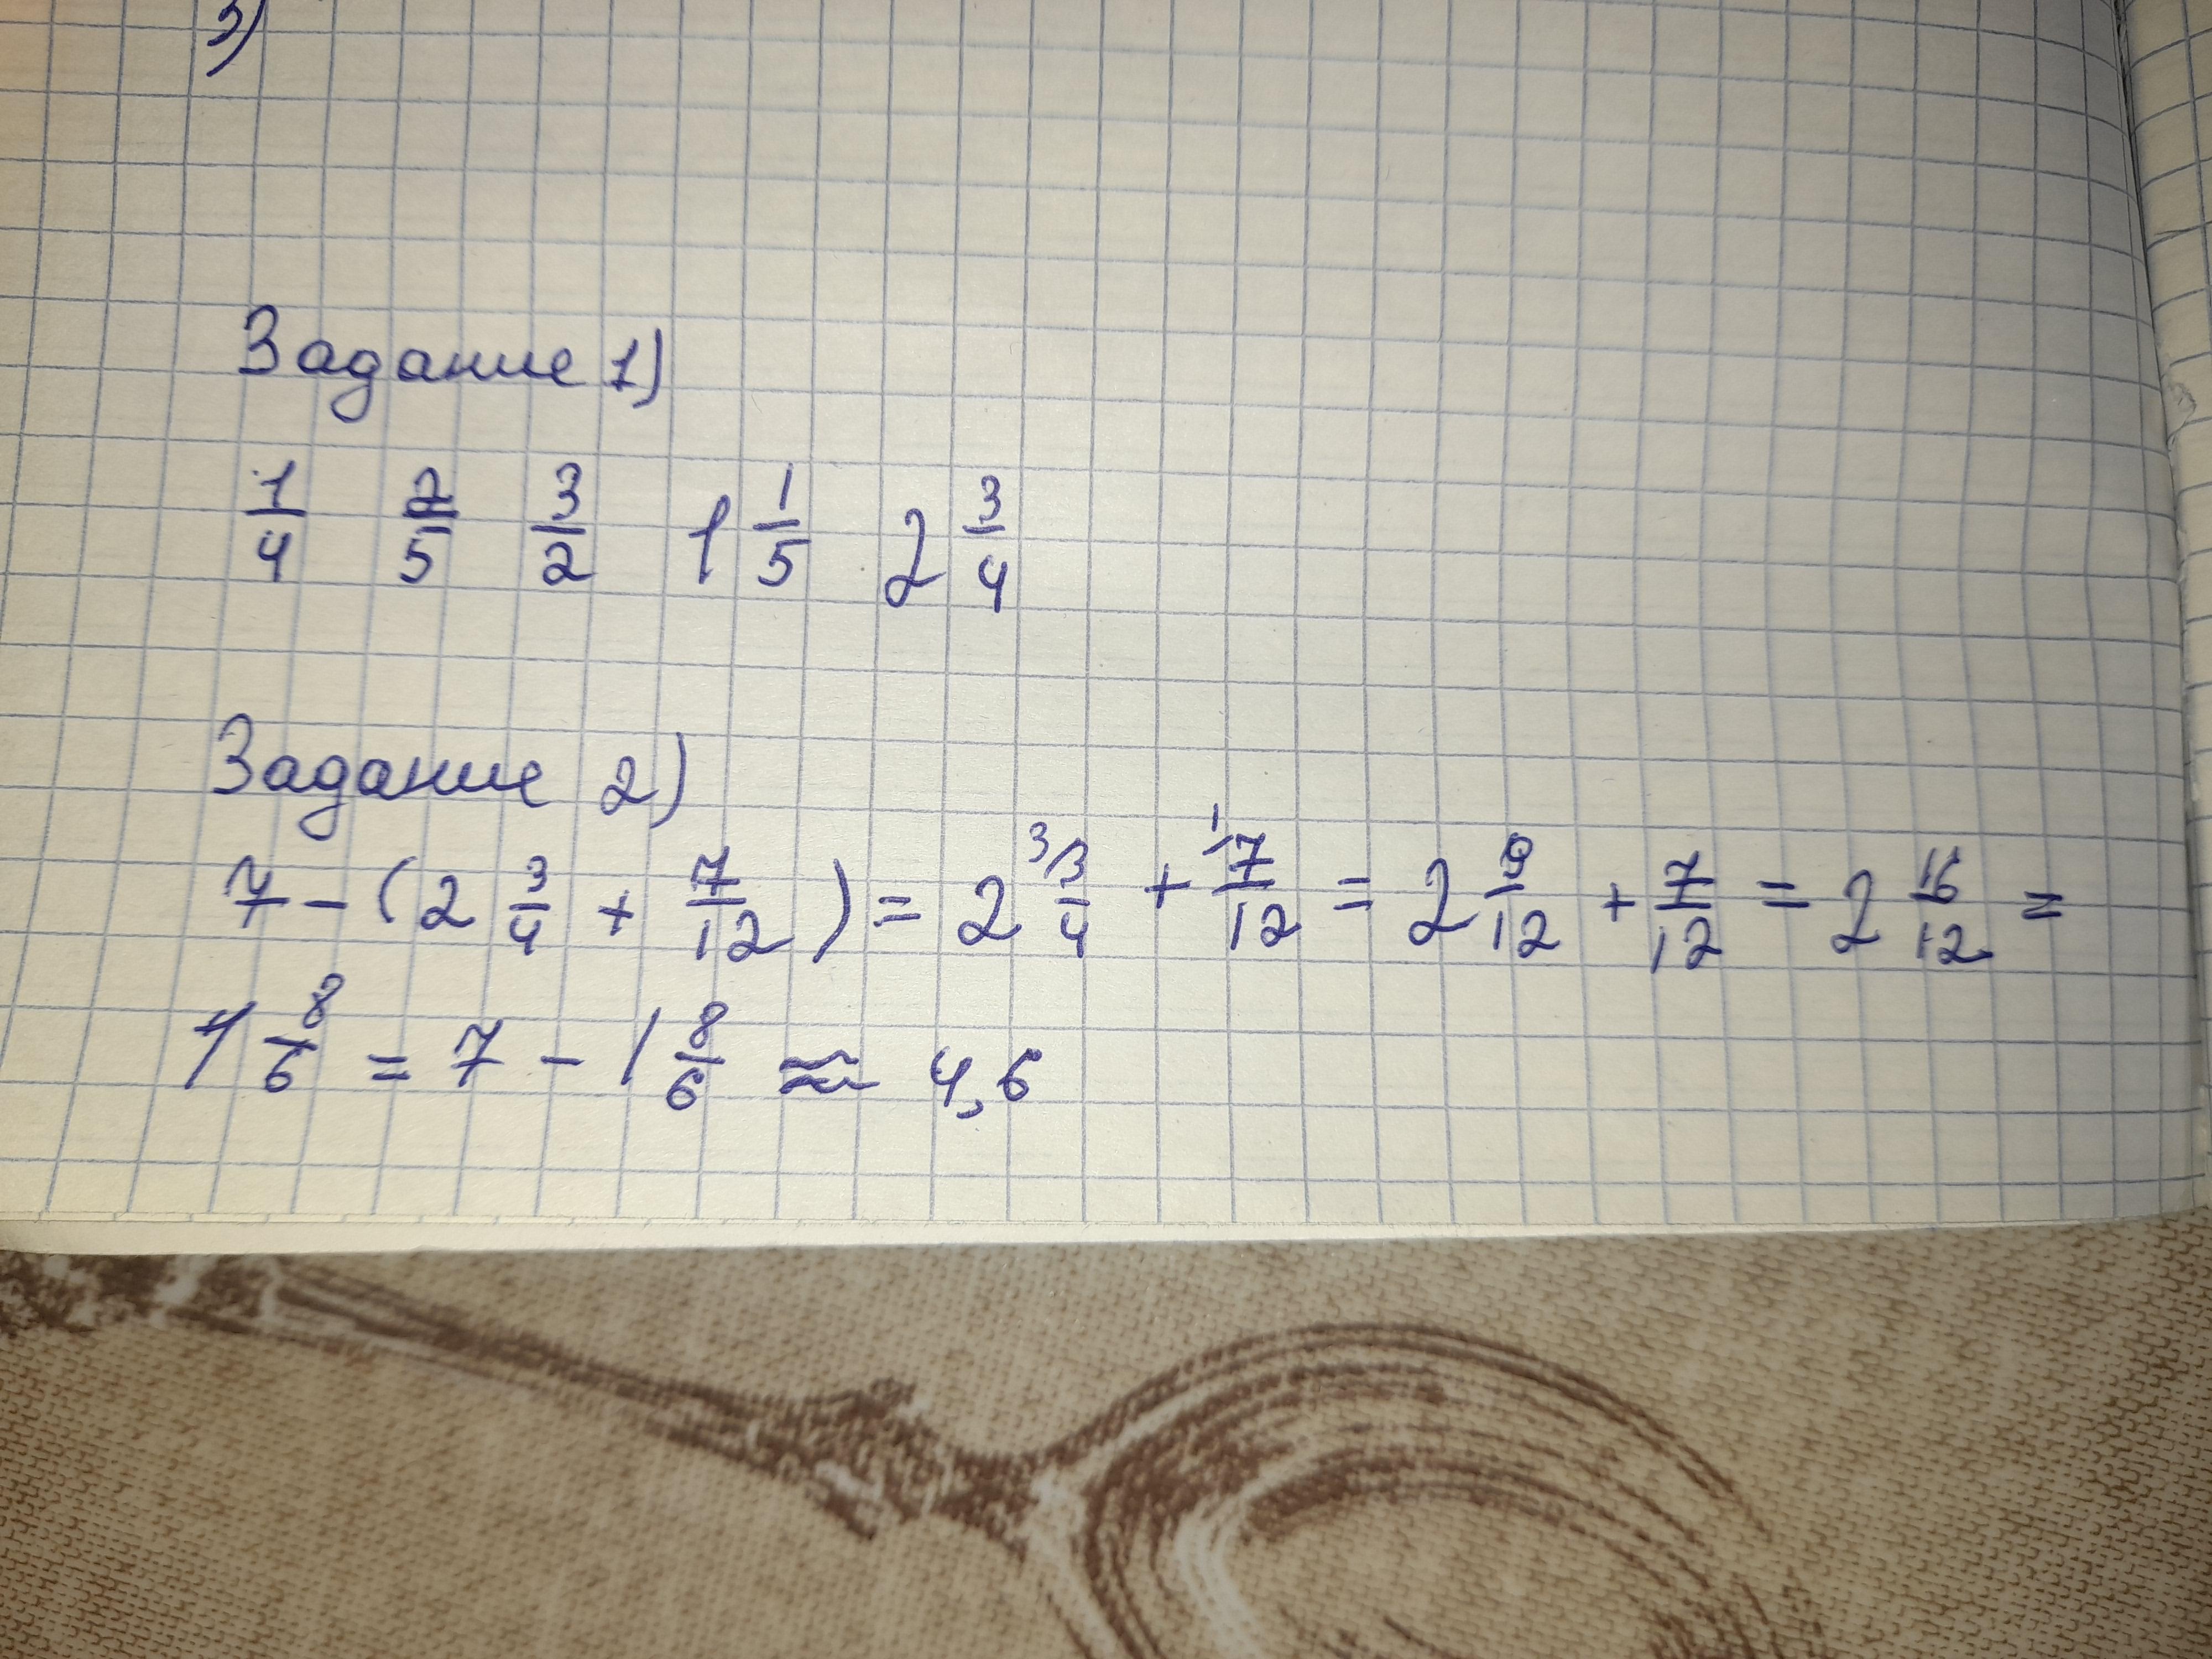 3)
Задание 1)
1/4 2/5 3/2 1 1/5 2 3/4
Задание 2)
7 - (2 3/4 + 7/12) = 2 ³⁄3/4 + ¹⁄7/12 = 2 9/12 + 7/12 = 2 16/12 =
1 8/6 = 7 - 1 8/6 ≈ 4,6